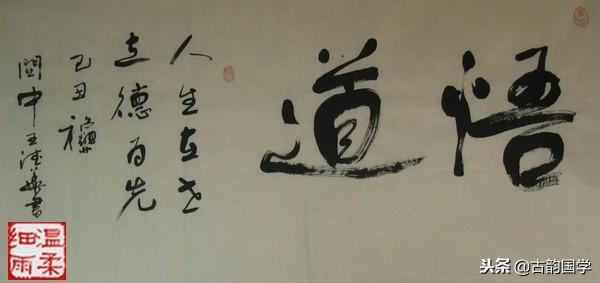 悟道
人生在世
立德为先
己丑
閩中王華書
温柔
细雨
头条@古韵国学